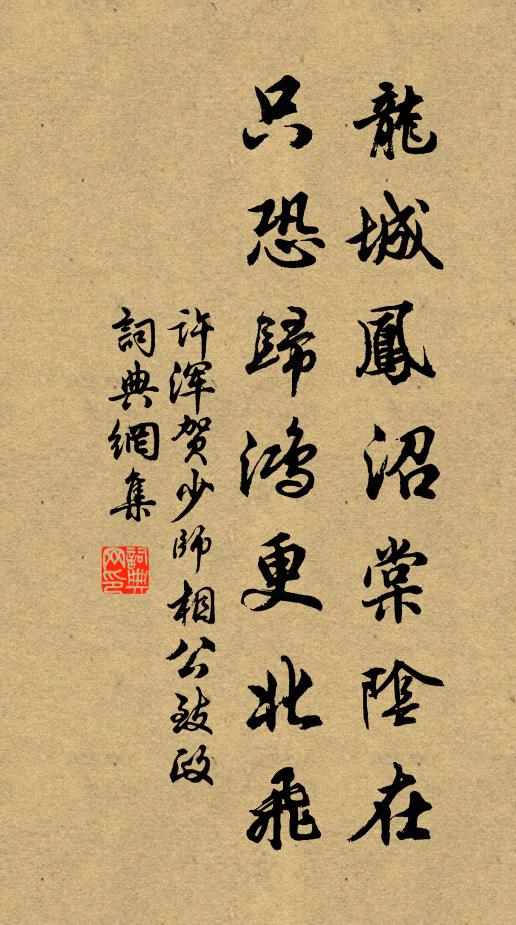 龍城鳳沼棠陰在
只恐歸鴻更北飛
许渾贺少師相公致政
詞典網集
詞典网印